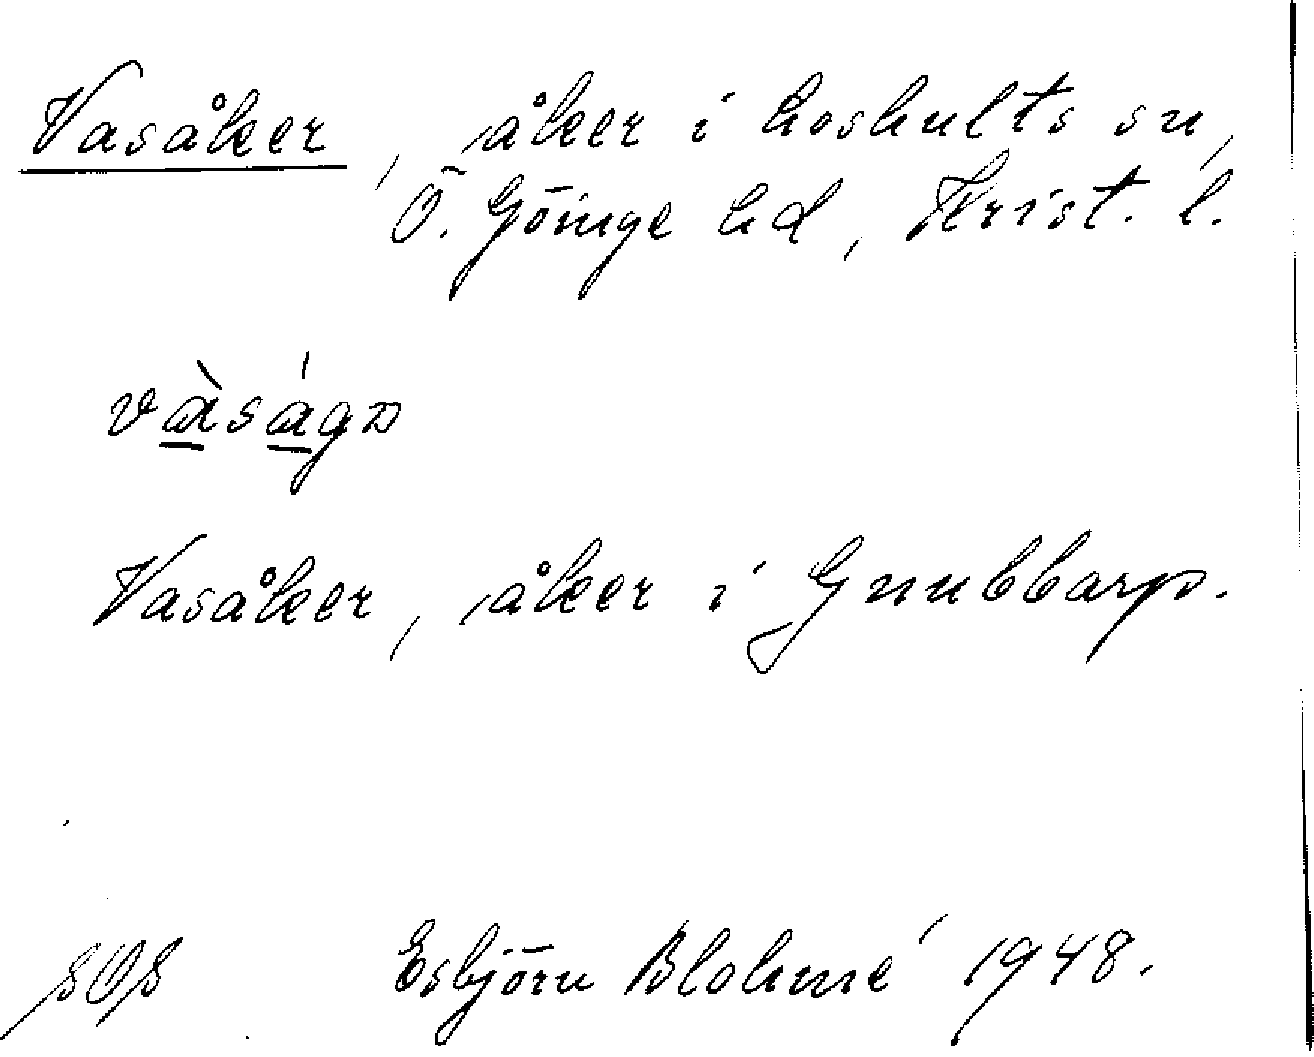 Vasåker, åker i hoshults sn,
Ö. Göinge hd, Krist. l.
vàságɒ
Vasåker, åker i Gnubbarp.
Esbjörn Blohmé 1948.